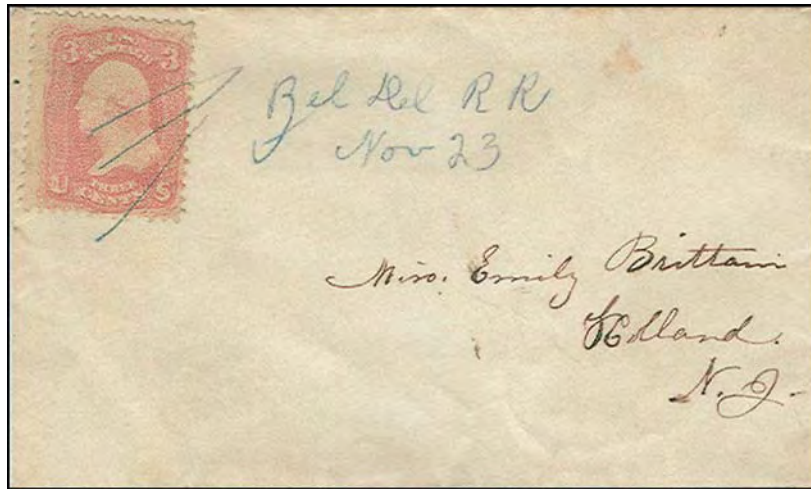 3 U.S. 3
POSTAGE
U THREE S
CENTS
Bel Del R R
Nov 23
Miss. Emily Brittain
Holland.
N. J.